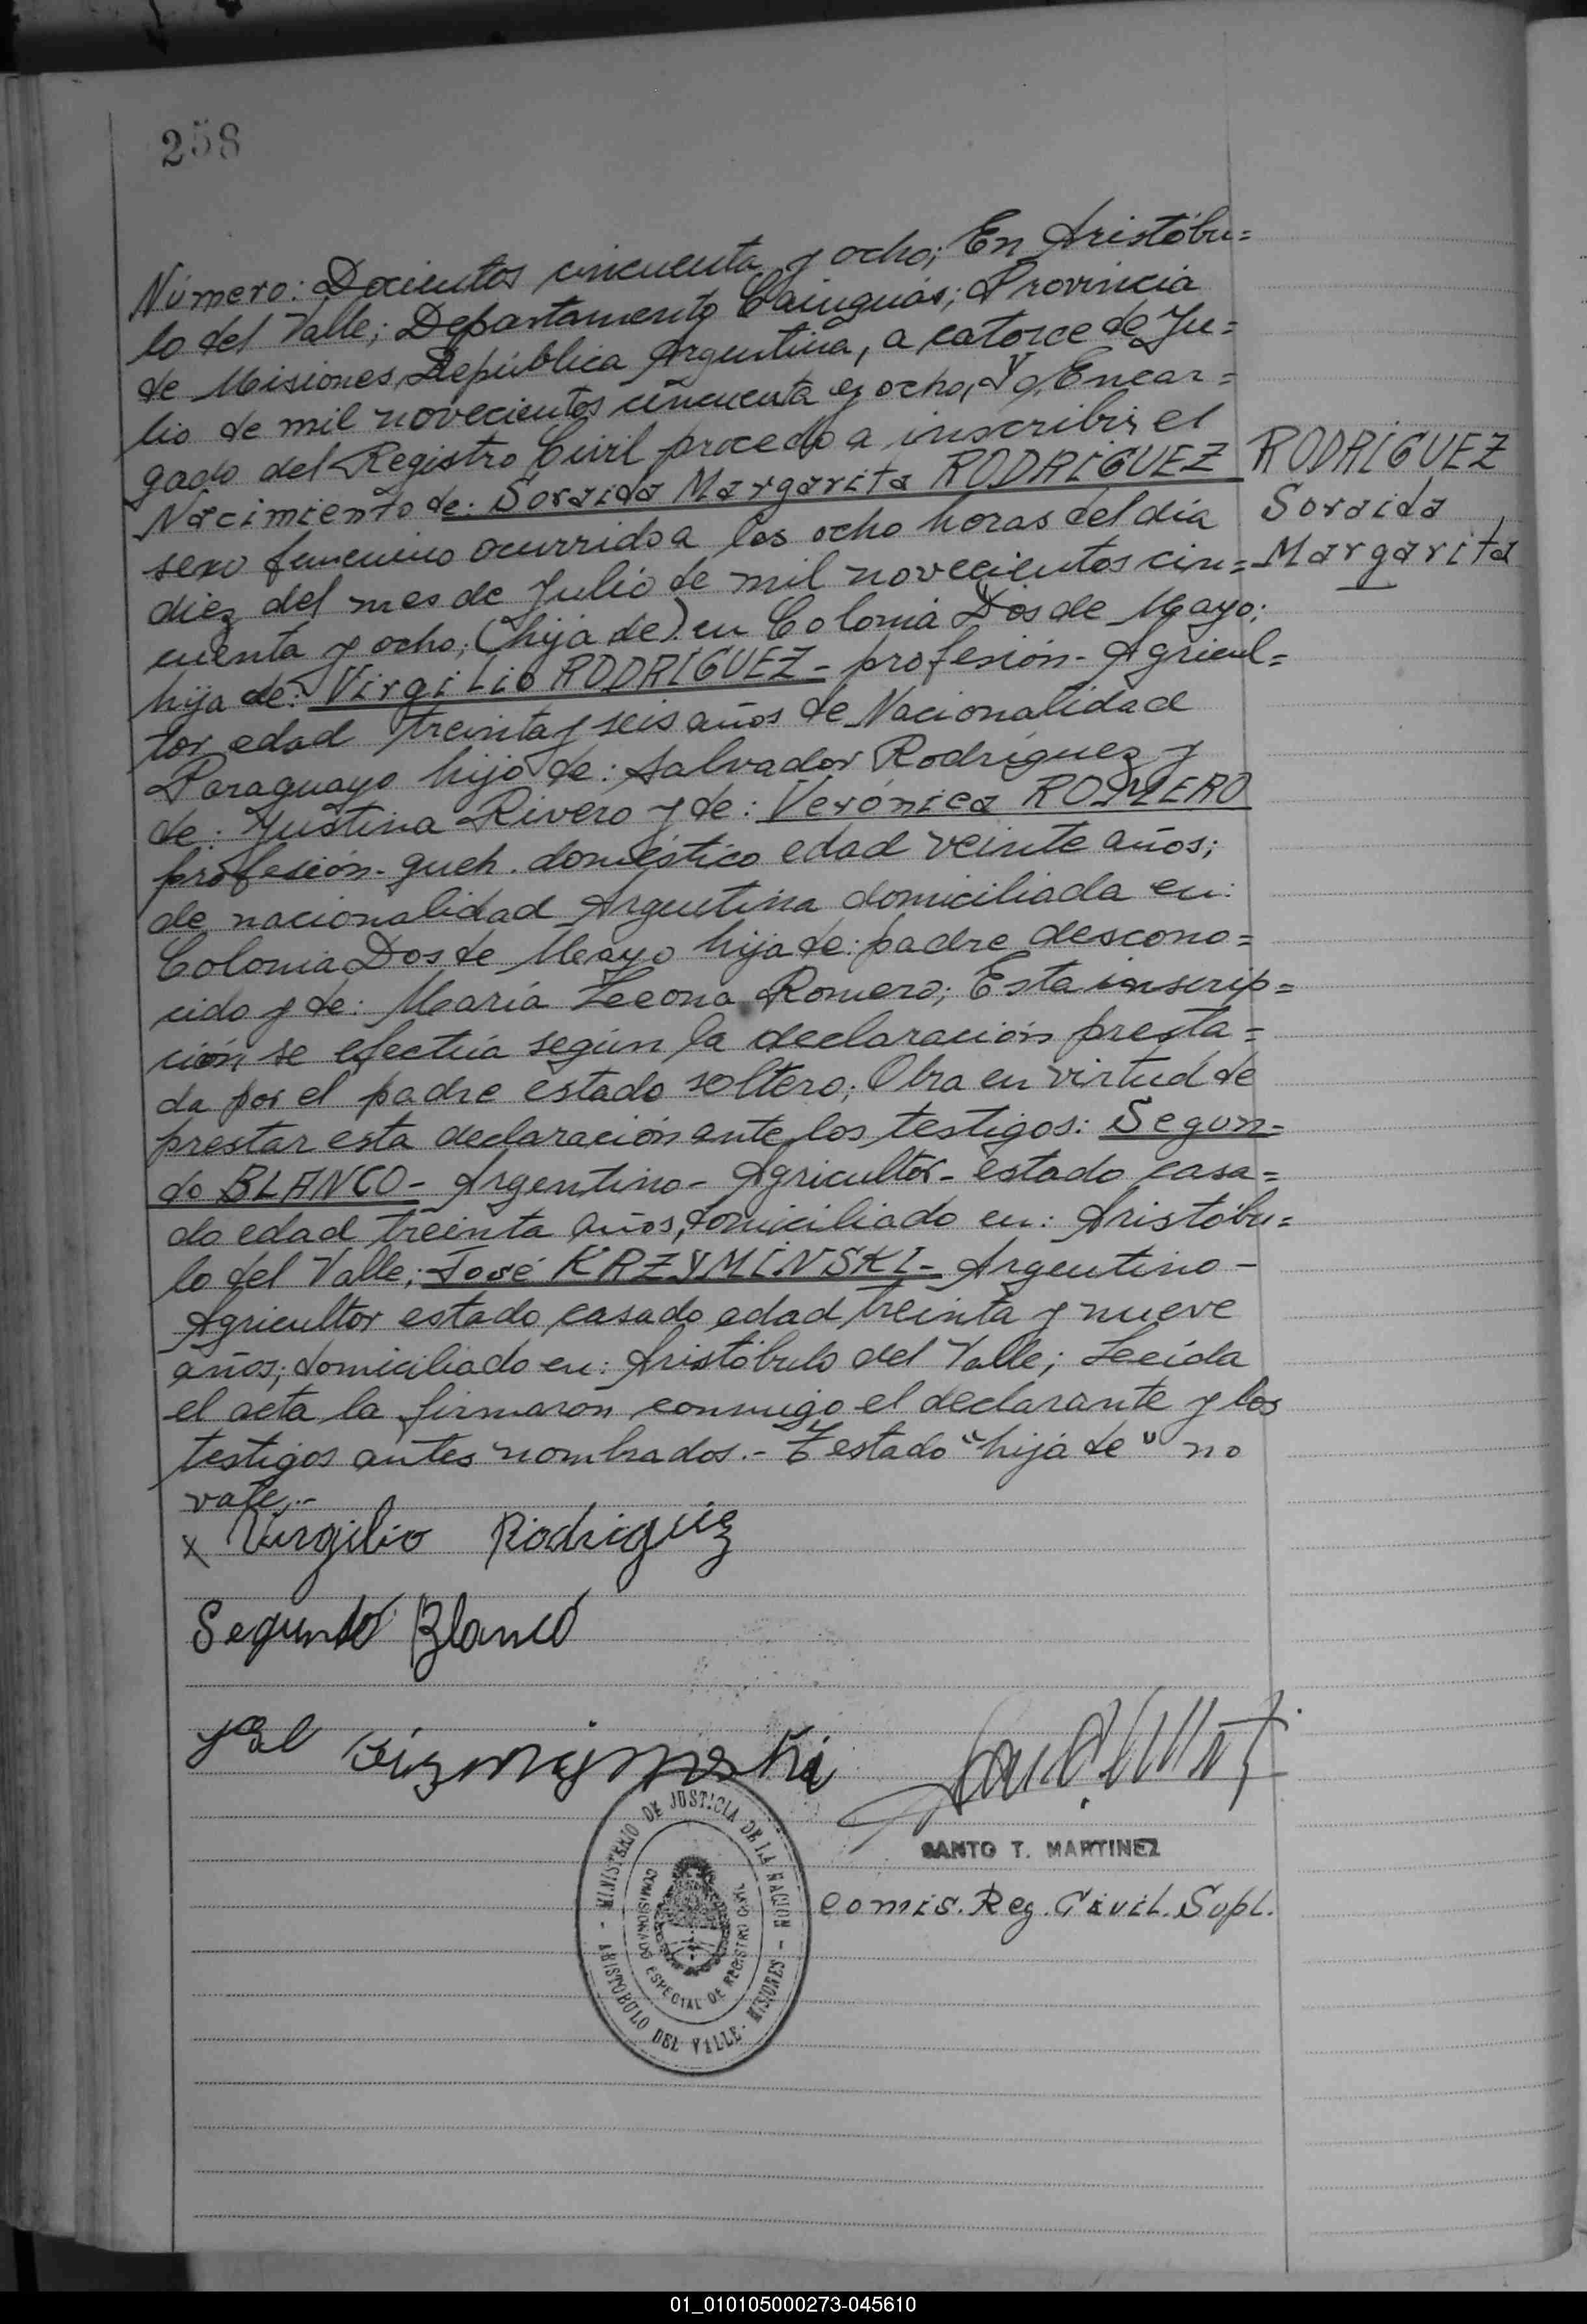 258
Número: Docientos cincuenta y ocho; En Aristóbu=
lo del Valle; Departamento Cainguás; Provincia
de Misiones, República Argentina, a catorce de Ju=
lio de mil novecientos cincuenta y ocho, Yo, Encar=
gado del Registro Civil procedo a inscribir el
Nacimiento de: Soraida Margarita RODRÍGUEZ
RODRÍGUEZ
Soraida
Margarita
sexo femenino ocurrido a las ocho horas del día
diez del mes de Julio de mil novecientos cin=
cuenta y ocho; (hija de) en Colonia Dos de Mayo;
hija de: Virgilio RODRÍGUEZ - profesión - Agricul=
tor edad treinta y seis años de Nacionalidad
Paraguayo hijo de: Salvador Rodríguez y
de: Justina Rivero y de: Verónica ROMERO
profesión - queh. doméstico edad veinte años;
de nacionalidad Argentina domiciliada en:
Colonia Dos de Mayo hija de: padre descono=
cido y de: María Leona Romero; Esta inscrip=
ción se efectúa según la declaración presta=
da por el padre estado soltero; Obra en virtud de
prestar esta declaración ante los testigos: Segun=
do BLANCO - Argentino - Agricultor - estado casa=
do edad treinta años, domiciliado en: Aristóbu=
lo del Valle; José KRZYMINSKI - Argentino -
Agricultor estado casado edad treinta y nueve
años; domiciliado en: Aristóbulo del Valle; Leída
el acta la firmaron conmigo el declarante y los
testigos antes nombrados.- Testado "hija de" no
vale.-
x Virgilio Rodriguez
Segundo Blanco
SANTO T. MARTINEZ
Comis. Reg. Civil. Supl.
MINISTERIO DE JUSTICIA DE LA NACION
COMISIONADO ESPECIAL DE REGISTRO CIVIL
- ARISTOBULO DEL VALLE - MISIONES -
01_010105000273-045610